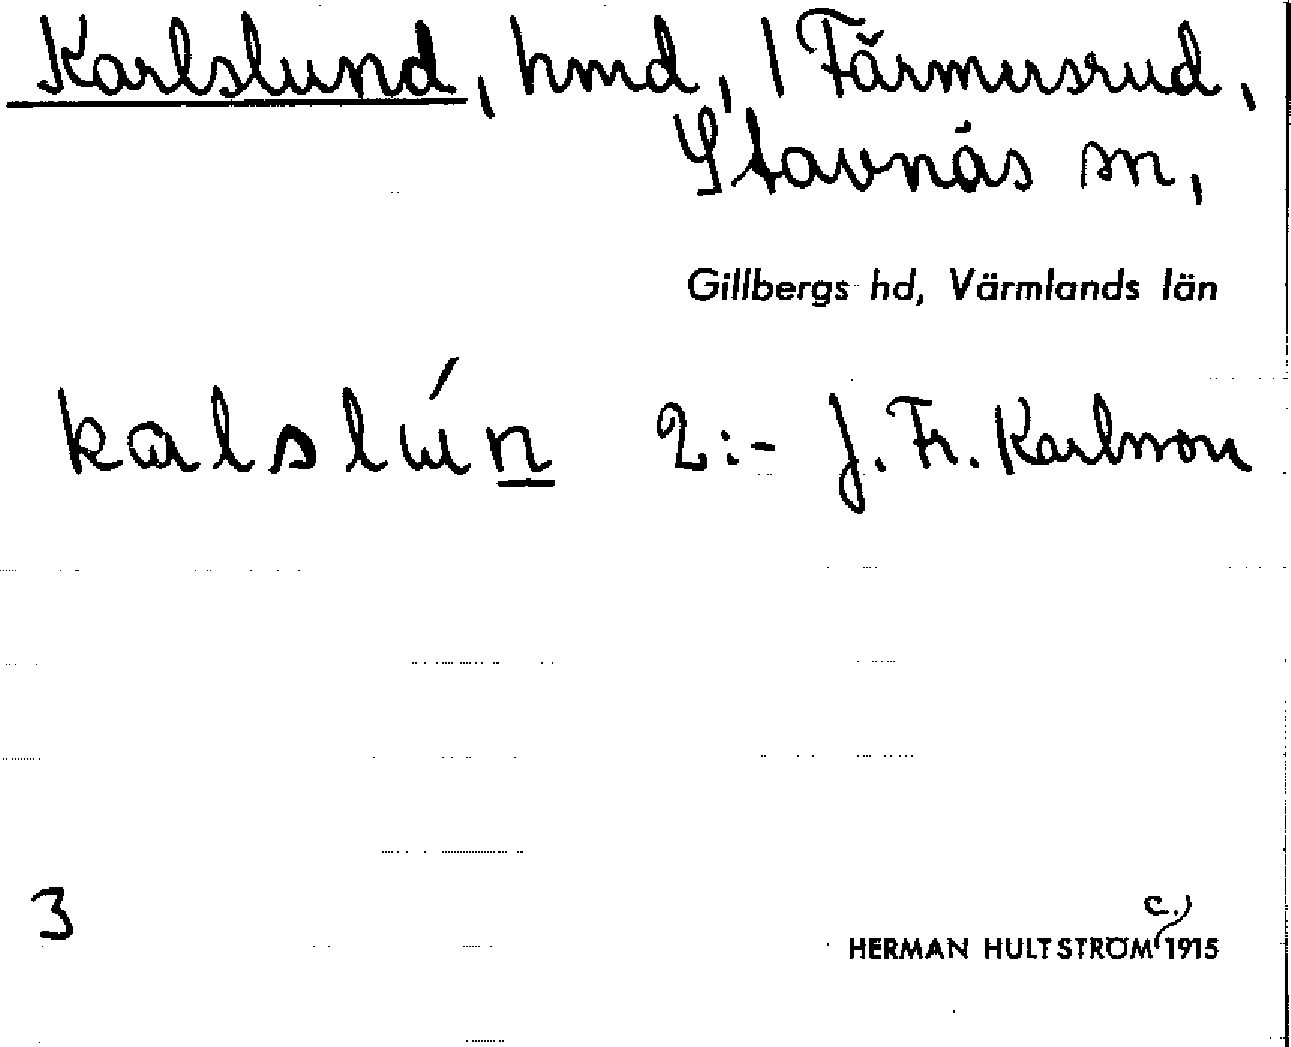 Karlslund, hmd, 1 Färmersrud,
Stavnäs sn,
Gillbergs hd, Värmlands län
kalslún 2:- J. Fr. Karlsson
3
c.)
HERMAN HULTSTRÖM 1915